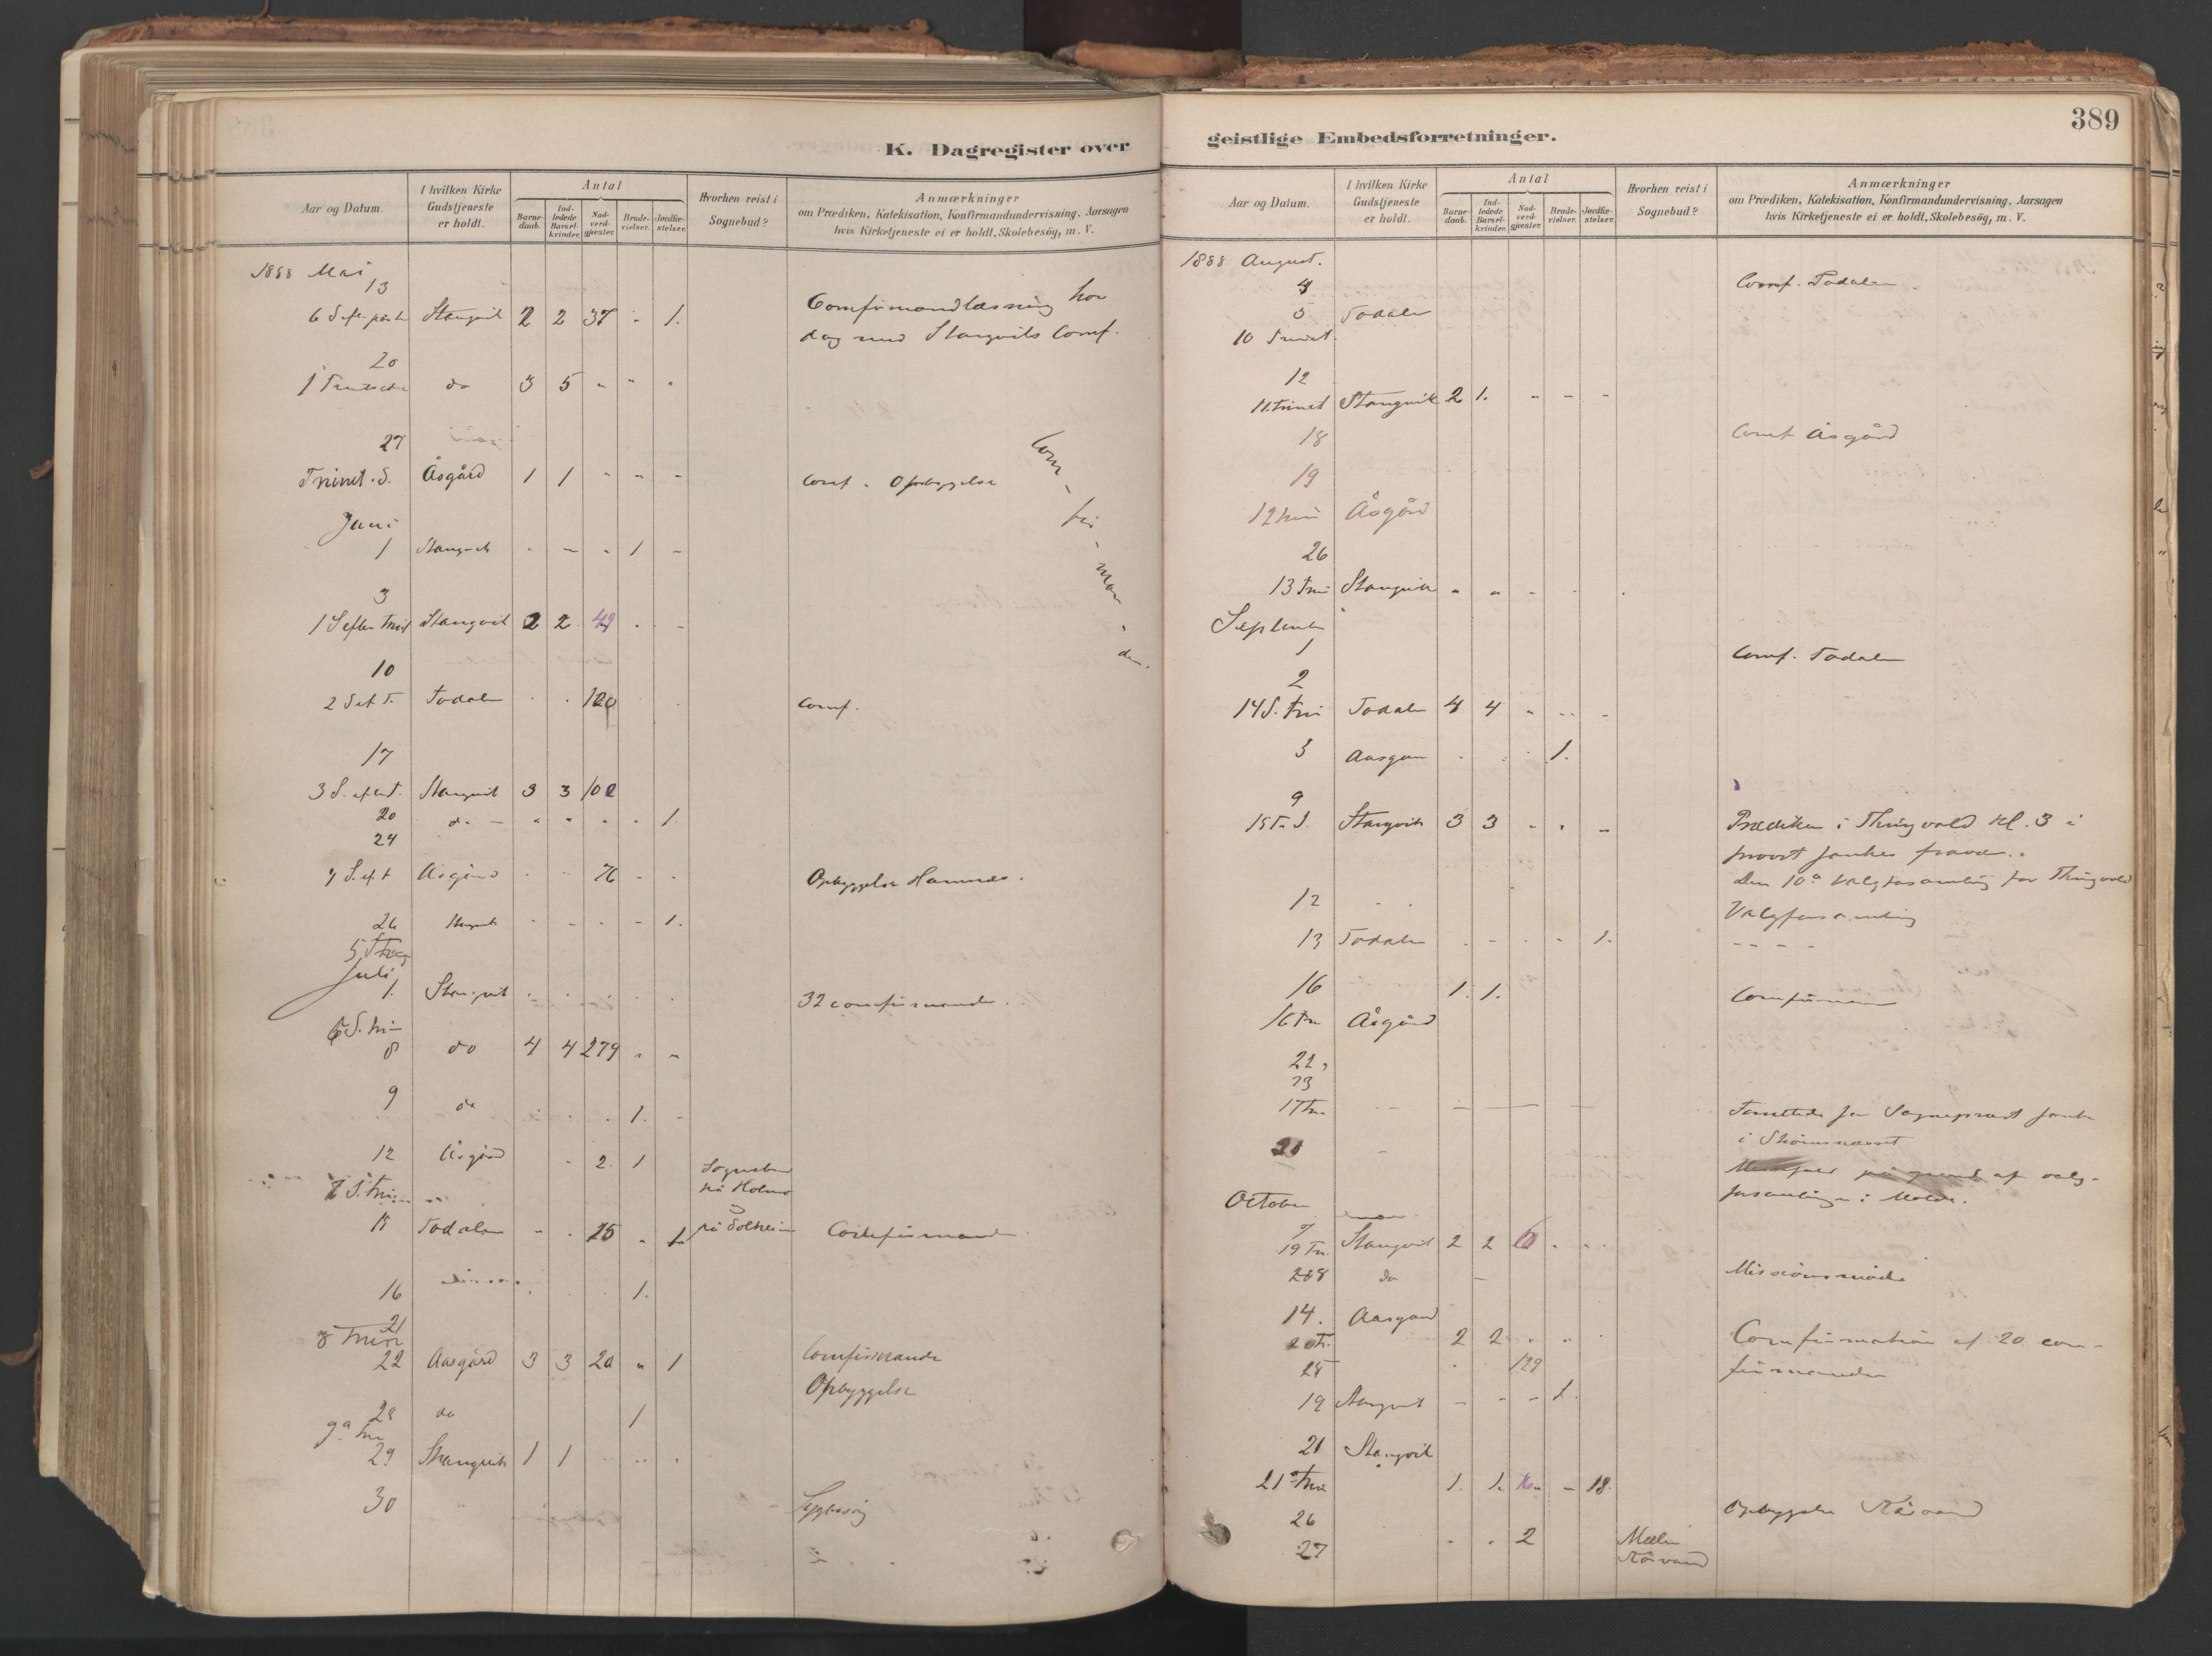 K. Dagregister over
Aar og Datum.
I hvilken Kirke Gudstjeneste er holdt.
Antal
Barnedaab.
Indledede Barselkvinder.
Nadverdgjæster.
Brudevielser.
Jordfæstelser.
Hvorhen reist i Sognebud?
Anmærkninger
om Prædiken, Katekisation, Konfirmandundervisning, Aarsagen
hvis Kirketjeneste ei er holdt, Skolebesög, m. V.
1888 Mai
13
Stangvik 2 2 37 - 1. Comfirmandlæsning hver
dag med Stangviks Comf.
20
do 3 5 - - -
27
Trinit. S. Åsgård 1 1 - - - Conf. Opbyggelse
Com-fir-man-der.
Juni
1 Stangvik - - - 1 -
3
1 S efter Trinit Stangvik 2 2 49 - -
10
2 S ef T. Todalen - - 120 Comf.
17
3 S. ef. T. Stangvik 3 3 102
20 do - - - - - 1.
24
4 S. ef. t Åsgård - - 76 - - Opbyggelse Hamnes.
26 Stangvik - - - - 1.
5 S
Juli
1. Stangvik - - - - - 32 confirmander.
6 S. Trin
8 do 4 4 279 - -
9 do - - - 1. -
12 Åsgård - 2. 1 Sognebud
på Holmo
7 S. Trin
15 Todalen - - 25 - 1 på Solheim Confirmand
16 1.
21
8 Trin
22 Aasgård 3 3 20 - 1 Comfirmander
Opbyggelse
28 do 1
9a Trin
29 Stangvik 1 1 - - -
30 Sygbesøg
389
geistlige Embedsforretninger.
Aar og Datum.
I hvilken Kirke Gudstjeneste er holdt.
Antal
Barnedaab.
Indledede Barselkvinder.
Nadverdgjæster.
Brudevielser.
Jordfæstelser.
Hvorhen reist i Sognebud?
Anmærkninger
om Prædiken, Katekisation, Konfirmandundervisning, Aarsagen
hvis Kirketjeneste ei er holdt, Skolebesög, m. V.
1888 August.
4 Comf. Todalen.
5 Todalen
10 Trinit.
12
11. Trinit Stangvik 2 1. - - -
18 Comf Åsgård
19
12 Trin Åsgård
26
13 Trin Stangvik - - - - -
September
1 Comf. Todalen
2
14 S. Trin Todalen 4 4 - - -
3 Aasgaard - - - 1.
9
15 Tr. S. Stangvik 3 3 - - - Prædiken i Thingvold Kl. 3 i
provst fravær.
Den 10de Valgforsamling for Thingvold
12 - - Valgforsamling
13 Todalen - - - - 1. - - - -
16 1. 1. Comfirman
16 Trin Åsgård
22,
23
17 Trin - - - - - Sogneprest
i
Messefald på grund af valg-
forsamlingen i Molde.
October
7
19 Tr. Stangvik 2 2 - -
8 do - Missionsmøde
14. Aasgaard
20 Tr. 2 2 - - - Comfirmation af 20 con-
firmander
- - 129
19 Stangvik - - - 1.
21 Stangvik
21de Trin 1. 1. - 18.
26 Opbyggelse Kårvand
27 - - 2 Mælen
Kårvand